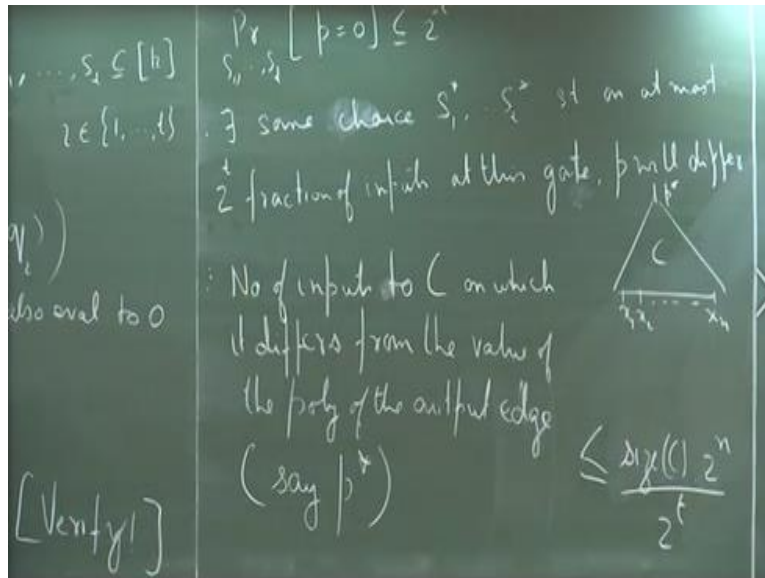 , ..., S_t ⊆ [k]
i ∈ {1,..,t}
q_i))
also eval to 0
[Verify!]
Pr [ p=0] ≤ 2^-t
S_1, .. S_t
. ∃ some choice S_1^*, .. S_t^* st on at most
2^-t fraction of inputs at this gate, p will differ
∴ No of inputs to C on which
it differs from the value of
the poly of the output edge
(say p^*)
≤ size(C) 2^n
2^t
p^*
C
x_1 x_2 ..... x_n